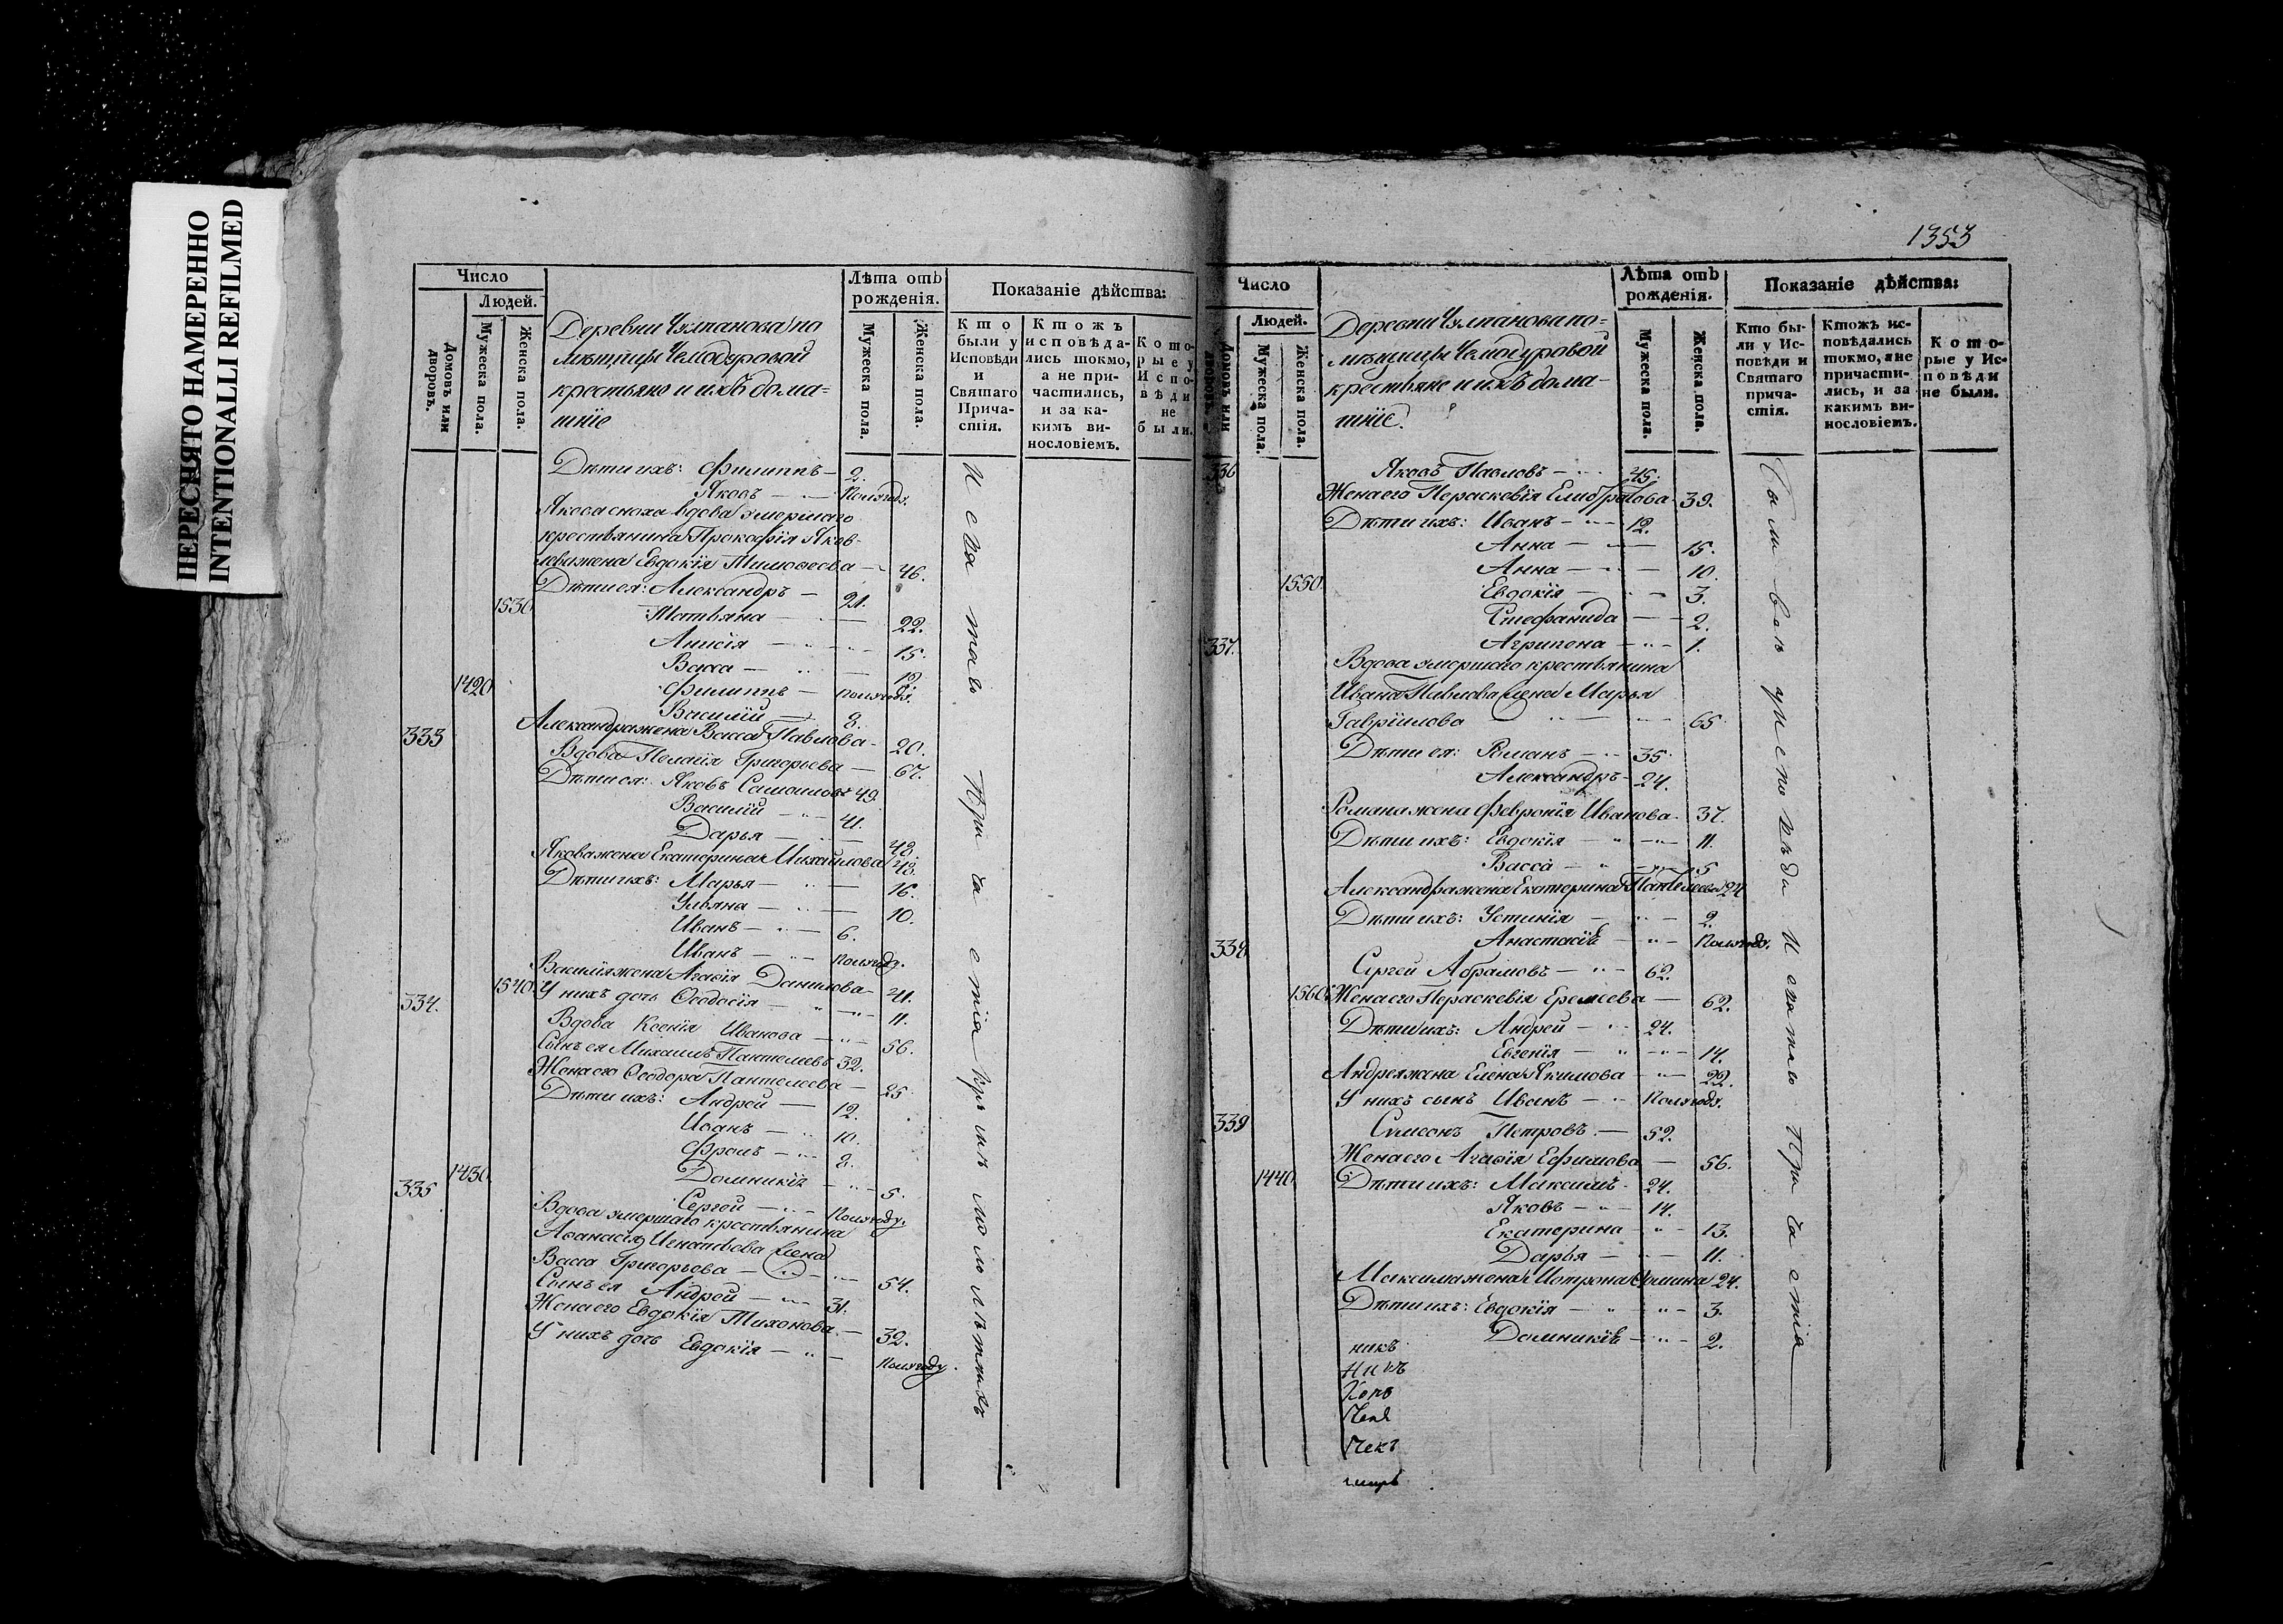 ПЕРЕСНЯТО НАМЕРЕННО
INTENTIONALLI REFILMED
Число
Людей.
Домовъ или дворовъ.
Мужеска пола.
Женска пола.
Деревни Чулпанова по
мѣщицы Чемодуровой
крестьяне и ихъ дома-
шніе
Лѣта отъ рожденія.
Мужеска пола.
Женска пола.
Показаніе дѣйства:
Кто были у Исповѣди и Святаго Прича-стія.
Ктожъ исповѣда-лись токмо, а не при-частились, и за ка-кимъ ви-нословіемъ.
Кото-рые у Испо-вѣди не были.
Дѣти ихъ: Филиппъ — 2.
Яковъ — Полугоду.
Якова сноха вдова умершаго
крестьянина Прокофія Яков-
лева жена Евдокія Тимофеева — 46.
Дѣти ея: Александръ — 21.
1530 Татьяна — 22.
Анисія — 15.
Васса — 12.
1420 Филиппъ — полугоду.
Василій — 8.
Александра жена Васса Павлова — 20.
333 Вдова Пелагія Григорьева — 67.
Дѣти ея: Яковъ Самоиловъ 49.
Василій — 41.
Дарья — 48.
Якова жена Екатерина Михайлова 48.
Дѣти ихъ: Марья — 16.
Ульяна — 10.
Иванъ — 6.
Иванъ — полугоду.
Василія жена Агафія Данилова — 41.
1540. У нихъ дочь Ѳеодосія — 11.
334. Вдова Ксенія Иванова — 56.
Сынъ ея Михаилъ Пантелеевъ 32.
Жена его Ѳеодора Пантелеева — 25
Дѣти ихъ: Андрей — 12.
Иванъ — 10.
Фролъ — 8.
Домникія — 5.
1430. Сергей — Полугоду.
335 Вдова умершаго крестьянина
Афанасія Игнатьева жена
Васса Григорьева — 54.
Сынъ ея Андрей — 31.
Жена его Евдокія Тихонова — 32.
У нихъ дочь Евдокія — полугоду.
И святаго Причастія кромѣ малолѣтнихъ
1353
Число
Людей.
Домовъ или дворовъ.
Мужеска пола.
Женска пола.
Деревни Чулпанова по-
мѣщицы Чемодуровой
крестьяне и ихъ дома-
шніе.
Лѣта отъ рожденія.
Мужеска пола.
Женска пола.
Показаніе дѣйства:
Кто бы-ли у Ис-повѣди и Святаго прича-стія.
Ктожъ ис-повѣдались токмо, а не причасти-лись, и за какимъ ви-нословіемъ.
Кото-рые у Ис-повѣди не были.
336 Яковъ Павловъ — 45.
Жена его Параскевія 39.
Дѣти ихъ: Иванъ — 12.
Анна — 15.
Анна — 10.
1550. Евдокія — 3.
Стефанида — 2.
Агрипена — 1.
337. Вдова умершаго крестьянина
Ивана Павлова жена Марья
Гавріилова — 65
Дѣти ея: Романъ — 35
Александръ — 24.
Романа жена Февронія Иванова — 37.
Дѣти ихъ: Евдокія — 11.
Васса — 5
Александра жена Екатерина Пантелеева 24
Дѣти ихъ: Устинія — 2.
Анастасія — Полугоду.
338 Сергей Абрамовъ — 62.
1560. Жена его Параскевія Еремеева — 62.
Дѣти ихъ: Андрей — 24.
Евгенія — 14.
Андрея жена Елена Якимова — 22.
У нихъ сынъ Иванъ — Полугоду.
339 Симеонъ Петровъ — 52.
Жена его Агафія Ефимова — 56.
1440. Дѣти ихъ: Максимъ — 24.
Яковъ — 14.
Екатерина — 13.
Дарья — 11.
Максима жена Матрона Фомина 24.
Дѣти ихъ: Евдокія — 3.
Домникія — 2.
Были всѣ у исповѣди и святаго Причастія
никъ